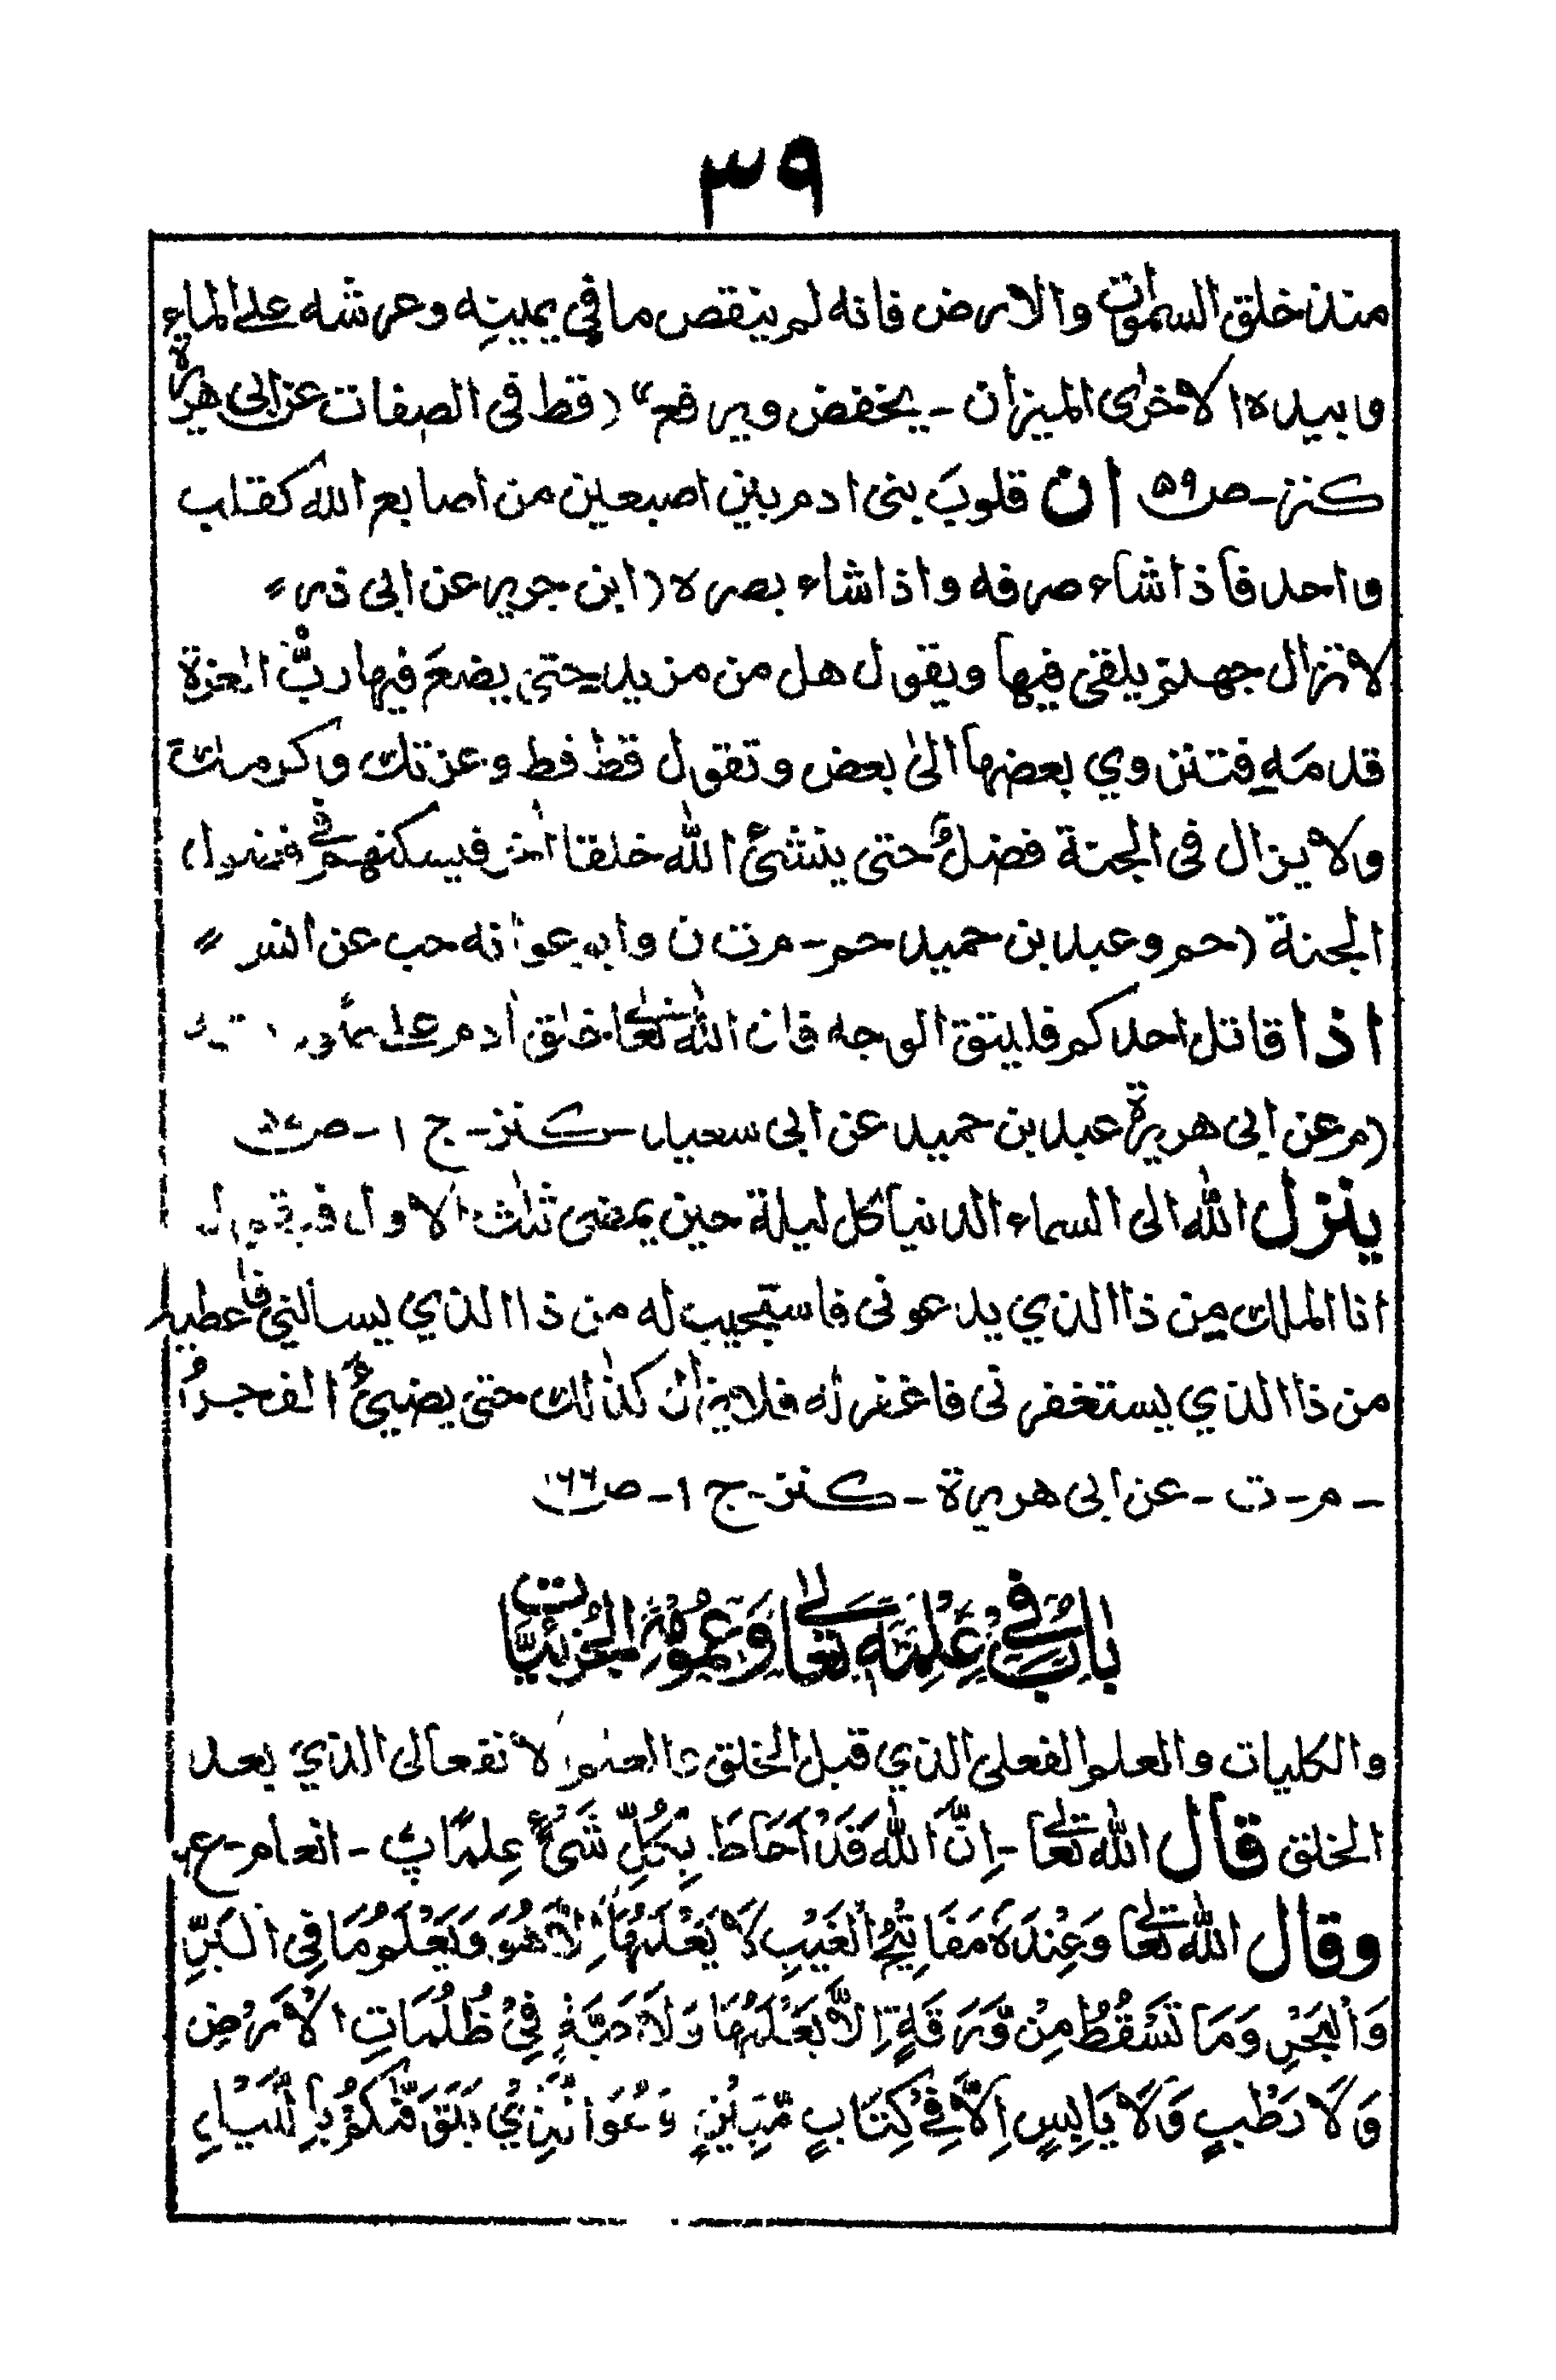 ٣٩
منذ خلق السموات والارض فانه لم ينقص ما في يمينه وعرشه على الماء
وبيده الاخرى الميزان - يخفض ويرفع" (قط فى الصفات عن ابى هريرة
كنز - ص٥٩ ان قلوبَ بنى ادم بين اصبعين من اصابع الله كقلب
واحد فاذا شاء صرفه واذا شاء بصره (ابن جرير عن ابى ذر ؞
لا تزال جهنم يلقى فيها ويقول هل من مزيد حتى يضعَ فيها ربُّ العزة
قدمَه فتنزوي بعضها الىٰ بعض وتقول قط قط وعزتك وكرمك
ولا يزال فى الجنة فضلٌ حتى ينشئ الله خلقا اخر فيسكنهم في فضول
الجنة (حم وعبد بن حميد حم - م ت ن وابو عوانه حب عن انس ؞
اذا قاتل احدكم فليتق الوجه فان الله تعالى خلق ادم على
(م عن ابى هريرة عبد بن حميد عن ابى سعيد - كنز - ج ١ - ص
ينزل الله الى السماء الدنيا كل ليلة حين يمضى ثلث الاول فيقول
انا الملك من ذا الذي يدعونى فاستجيب له من ذا الذي يسالني فاعطيه
من ذا الذي يستغفرنى فاغفر له فلا يزال كذالك حتى يضيئُ الفجرُ
- م - ت - عن ابى هريرة - كنز - ج ١ - ص١٦٦
بابٌ في عِلْمِه تعالى وَعُمُومِه الجُزئيَّات
والكليات والعلم الفعلى الذي قبل الخلق والعلم الانفعالى الذي بعد
الخلق قال الله تعالى - اِنَّ اللهَ قَدْ اَحَاطَ بِكُلِّ شَىْءٍ عِلمًا پ - انعام - ع
وقال الله تعالى وَعِنْدَهٗ مَفَاتِحُ الْغَيْبِ لَا يَعْلَمُهَا اِلَّا هُوَ وَيَعْلَمُ مَا فِى الْبَرِّ
وَالْبَحْرِ وَمَا تَسْقُطُ مِنْ وَّرَقَةٍ اِلَّا يَعْلَمُهَا وَلَا حَبَّةٍ فِيْ ظُلُمَاتِ الْاَرْضِ
وَلَا رَطْبٍ وَّلَا يَابِسٍ اِلَّا فِيْ كِتَابٍ مُّبِيْنٍ وَهُوَ الَّذِيْ يَتَوَفّٰكُمْ بِاللَّيْلِ